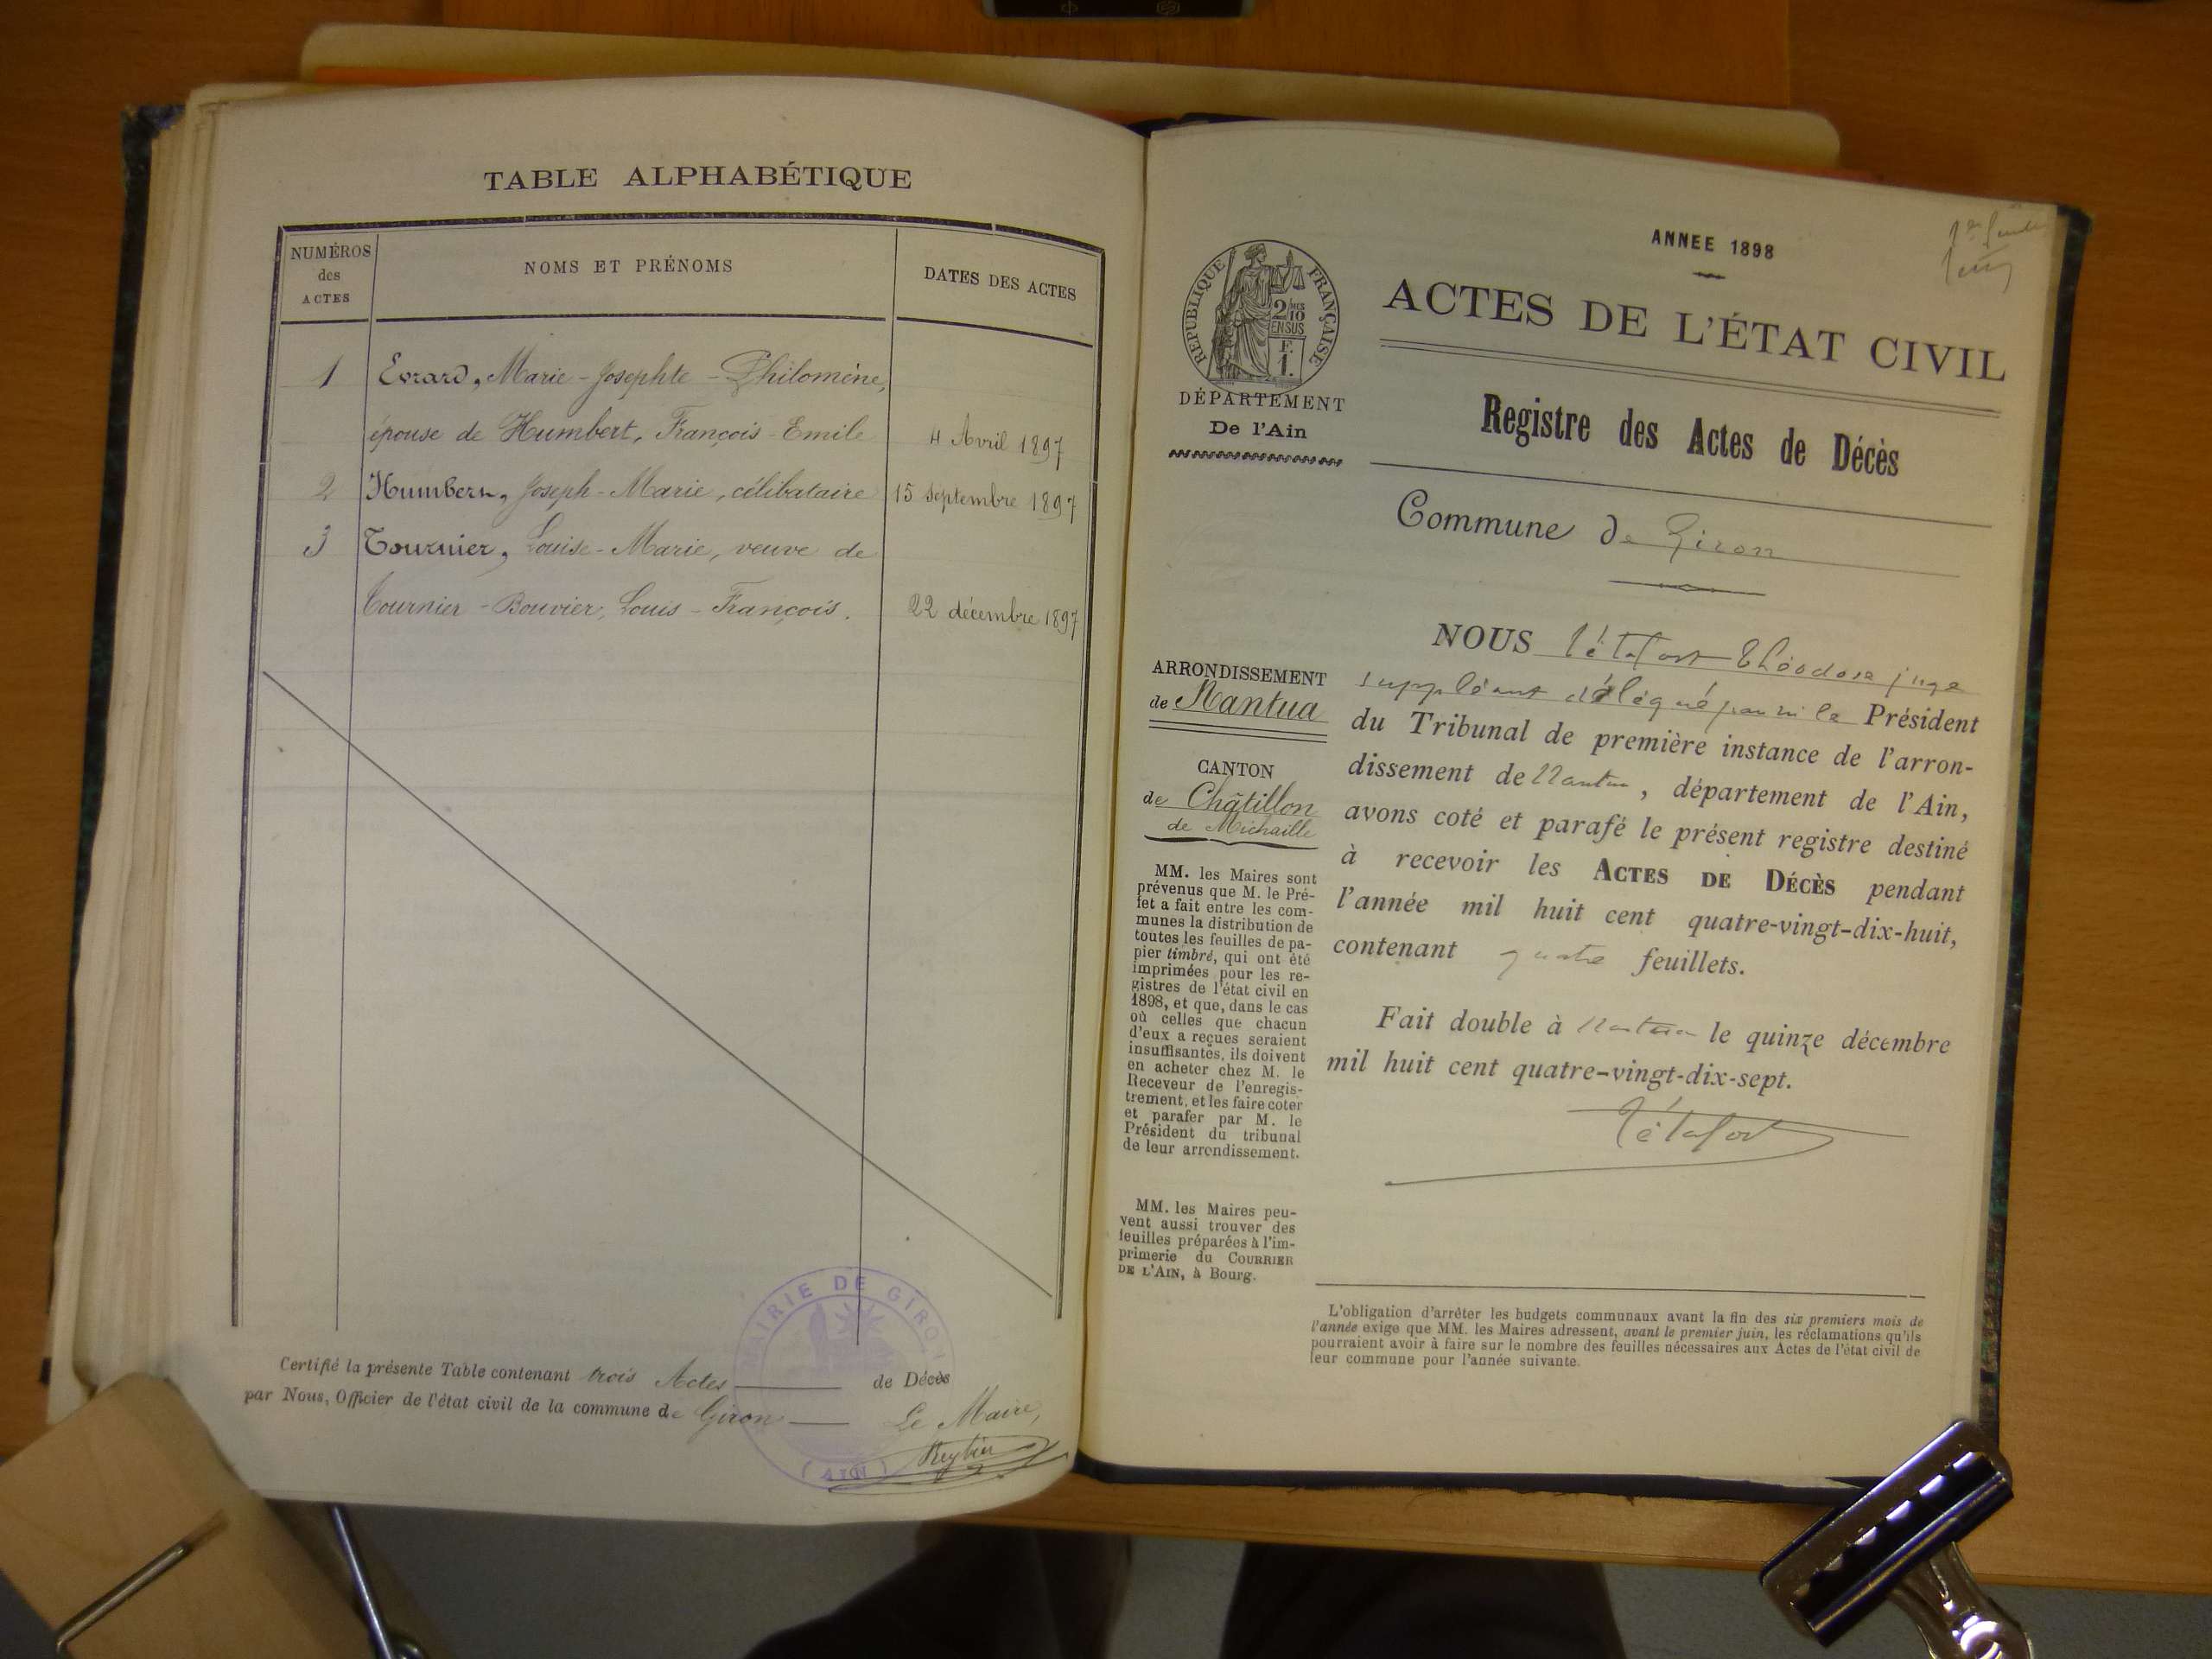 TABLE ALPHABÉTIQUE
NUMÉROS
des
ACTES
NOMS ET PRÉNOMS
DATES DES ACTES
1 Evrard, Marie-Josephte-Philomène,
épouse de Humbert, François-Emile 4 Avril 1897
2 Humbert, Joseph-Marie, célibataire 15 Septembre 1897
3 Tournier, Louise-Marie, veuve de
Tournier-Bouvier, Louis-François. 22 décembre 1897
Certifié la présente Table contenant trois Actes de Décès
par Nous, Officier de l'état civil de la commune de Giron Le Maire,
MAIRIE DE GIRON
(AIN)
ANNEE 1898
RÉPUBLIQUE FRANÇAISE
2/10
EN SUS
F.
1.
ACTES DE L'ÉTAT CIVIL
DÉPARTEMENT
De l'Ain
Registre des Actes de Décès
Commune de Giron
ARRONDISSEMENT
de Nantua
CANTON
de Châtillon
de Michaille
MM. les Maires sont
prévenus que M. le Pré-
fet a fait entre les com-
munes la distribution de
toutes les feuilles de pa-
pier timbré, qui ont été
imprimées pour les re-
gistres de l'état civil en
1898, et que, dans le cas
où celles que chacun
d'eux a reçues seraient
insuffisantes, ils doivent
en acheter chez M. le
Receveur de l'enregis-
trement, et les faire coter
et parafer par M. le
Président du tribunal
de leur arrondissement.
MM. les Maires peu-
vent aussi trouver des
feuilles préparées à l'im-
primerie du COURRIER
DE L'AIN, à Bourg.
NOUS Tétafort Théodore juge
suppléant délégué par M. le Président
du Tribunal de première instance de l'arron-
dissement de Nantua, département de l'Ain,
avons coté et parafé le présent registre destiné
à recevoir les ACTES DE DÉCÈS pendant
l'année mil huit cent quatre-vingt-dix-huit,
contenant quatre feuillets.
Fait double à Nantua le quinze décembre
mil huit cent quatre-vingt-dix-sept.
Tétafort
L'obligation d'arrêter les budgets communaux avant la fin des six premiers mois de
l'année exige que MM. les Maires adressent, avant le premier juin, les réclamations qu'ils
pourraient avoir à faire sur le nombre des feuilles nécessaires aux Actes de l'état civil de
leur commune pour l'année suivante.